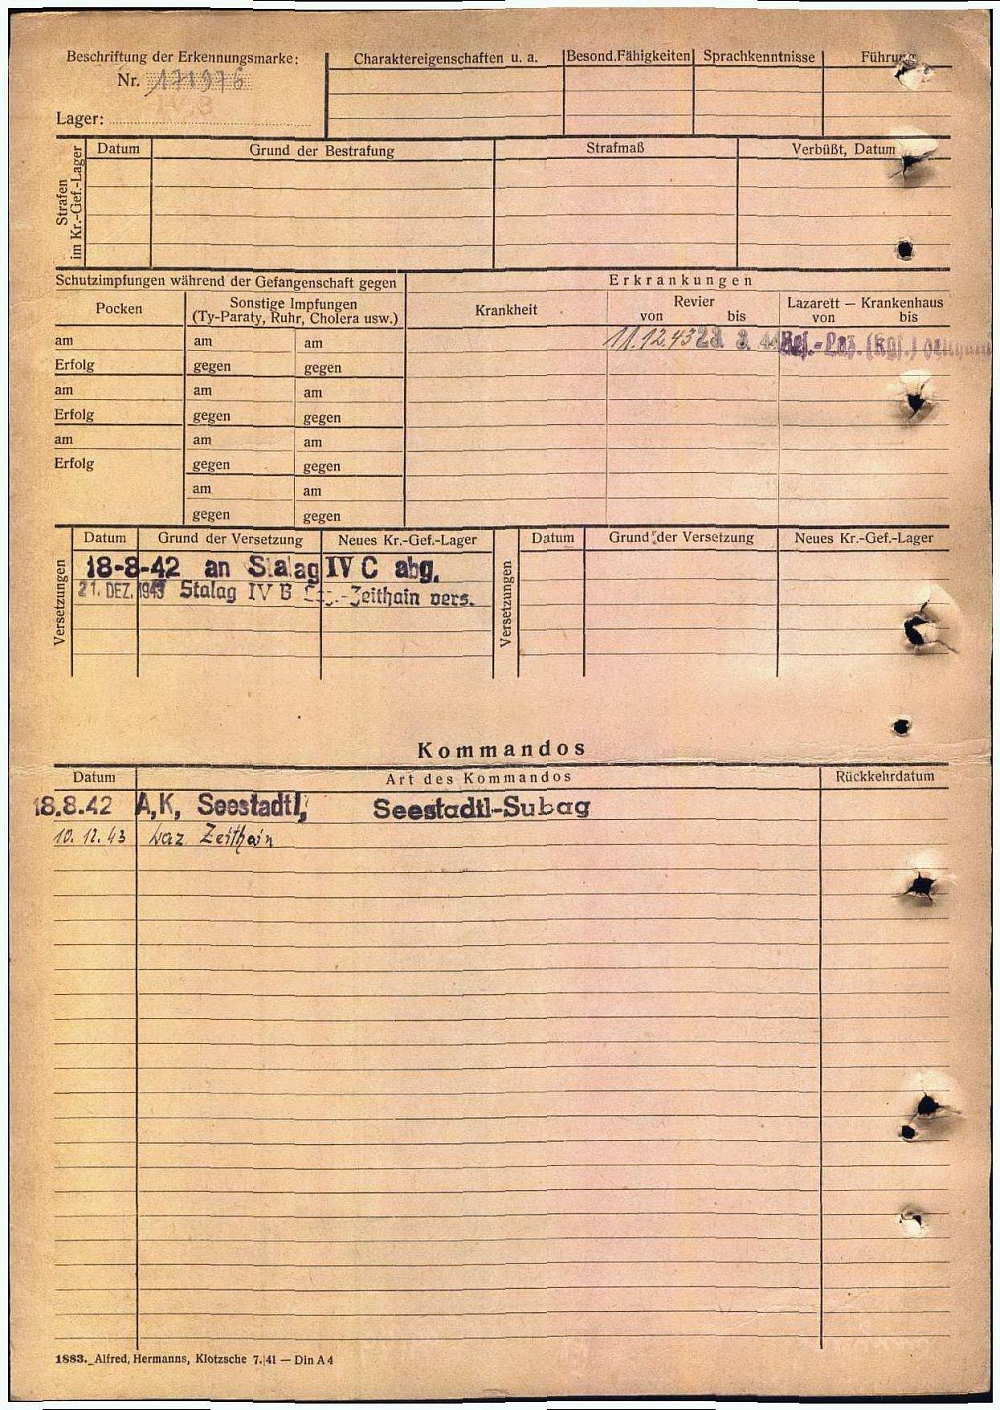 Beschriftung der Erkennungsmarke:
Nr. 171976
IV B
Lager:
Charaktereigenschaften u. a.
Besond. Fähigkeiten
Sprachkenntnisse
Führung
Strafen im Kr.-Gef.-Lager
Datum
Grund der Bestrafung
Strafmaß
Verbüßt, Datum
Schutzimpfungen während der Gefangenschaft gegen
Erkrankungen
Pocken
Sonstige Impfungen
(Ty-Paraty, Ruhr, Cholera usw.)
Krankheit
Revier
von bis
Lazarett — Krankenhaus
von bis
am am am 11.12.43 23. 3. 44 Ref.-Laz. (Kgf.)
Erfolg gegen gegen
am am am
Erfolg gegen gegen
am am am
Erfolg gegen gegen
am am
gegen gegen
Versetzungen
Datum Grund der Versetzung Neues Kr.-Gef.-Lager
18-8-42 an Stalag IV C abg.
21. DEZ. 1943 Stalag IV B -Zeithain vers.
Versetzungen
Datum Grund der Versetzung Neues Kr.-Gef.-Lager
Kommandos
Datum Art des Kommandos Rückkehrdatum
18.8.42 A,K, Seestadtl, Seestadtl-Subag
10. 12. 43 Laz Zeithain
1883. Alfred, Hermanns, Klotzsche 7. 41 — Din A 4